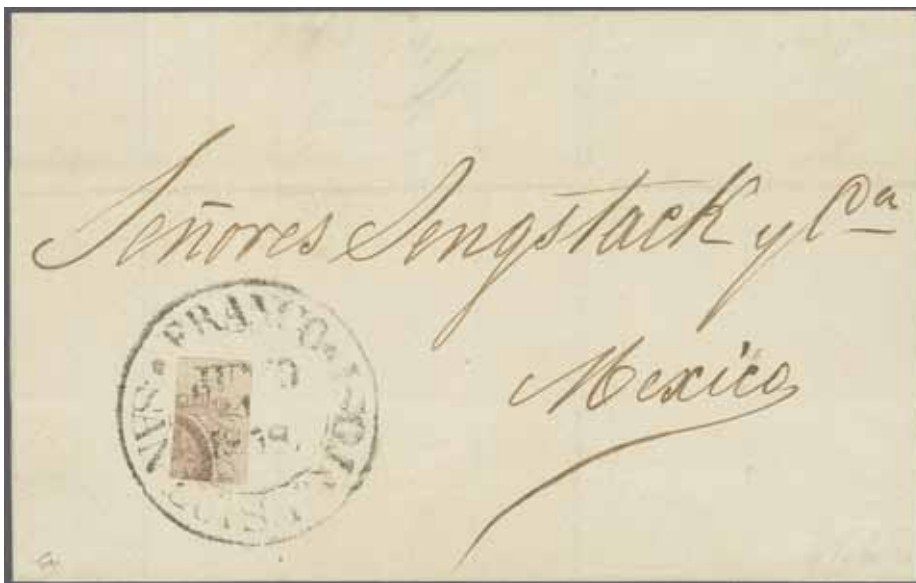 Señores Sengstack y Cia
Mexico
FRANCO
SAN LUIS POTOSI
JUNIO